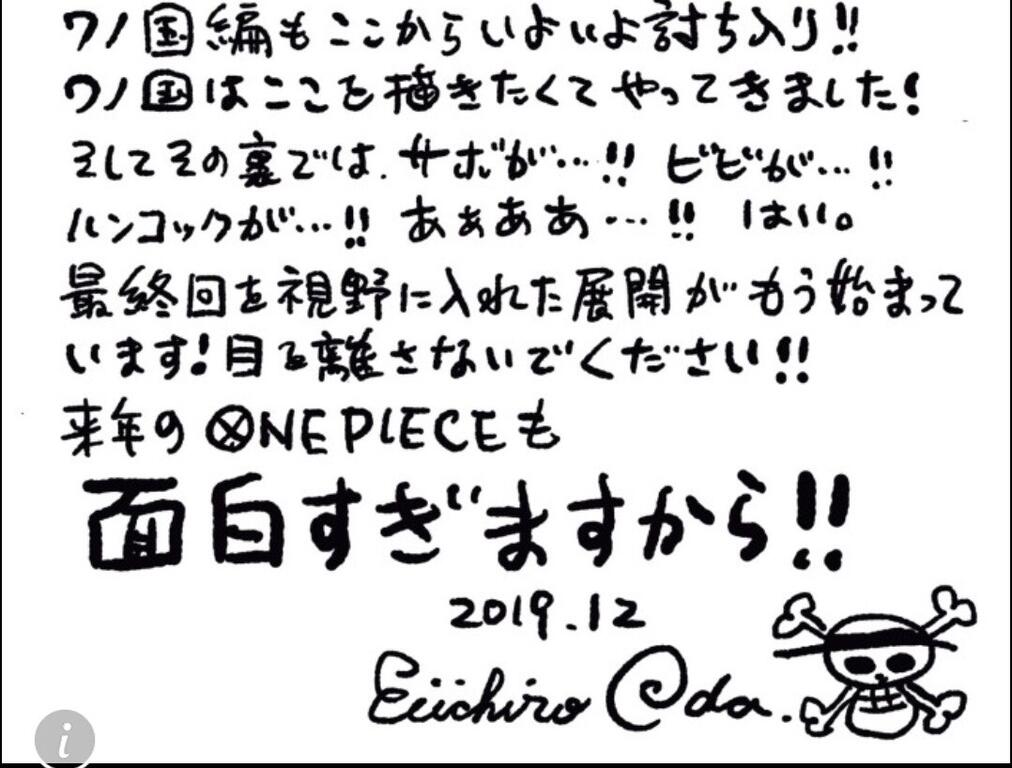 ワノ国編もここからいよいよ討ち入り!!
ワノ国はここを描きたくてやってきました!
そしてその裏では、サボが…!! ビビが…!!
ハンコックが…!! あぁぁあ…!! はい。
最終回を視野に入れた展開がもう始まって
います!目を離さないでください!!
来年のONE PIECEも
面白すぎますから!!
2019.12
Eiichiro Oda.
i